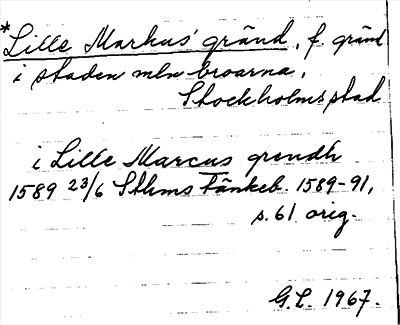 *Lille Markus' gränd, f. gränd
i staden mln broarna,
Stockholms stad
i Lille Marcus grendh
1589 23/6 Sthms Tänkeb. 1589-91,
s. 61 orig.
G.L. 1967.